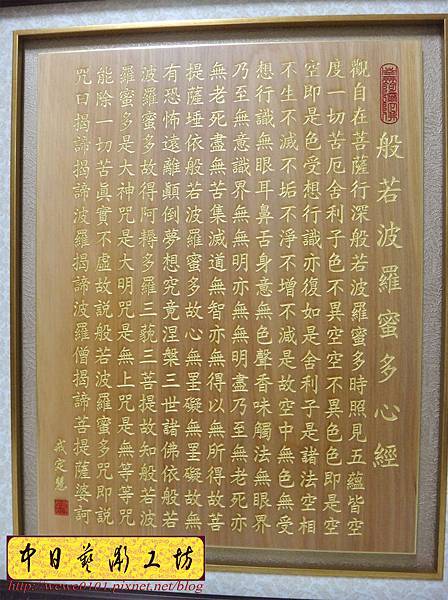 般若波羅蜜多心經
觀自在菩薩行深般若波羅蜜多時照見五蘊皆空
度一切苦厄舍利子色不異空空不異色色即是空
空即是色受想行識亦復如是舍利子是諸法空相
不生不滅不垢不淨不增不減是故空中無色無受
想行識無眼耳鼻舌身意無色聲香味觸法無眼界
乃至無意識界無無明亦無無明盡乃至無老死亦
無老死盡無苦集滅道無智亦無得以無所得故菩
提薩埵依般若波羅蜜多故心無罣礙無罣礙故無
有恐怖遠離顛倒夢想究竟涅槃三世諸佛依般若
波羅蜜多故得阿耨多羅三藐三菩提故知般若波
羅蜜多是大神咒是大明咒是無上咒是無等等咒
能除一切苦真實不虛故說般若波羅蜜多咒即說
咒曰揭諦揭諦波羅揭諦波羅僧揭諦菩提薩婆訶
戒定慧
中日藝術工坊
http://wewe0101.pixnet.net/blog